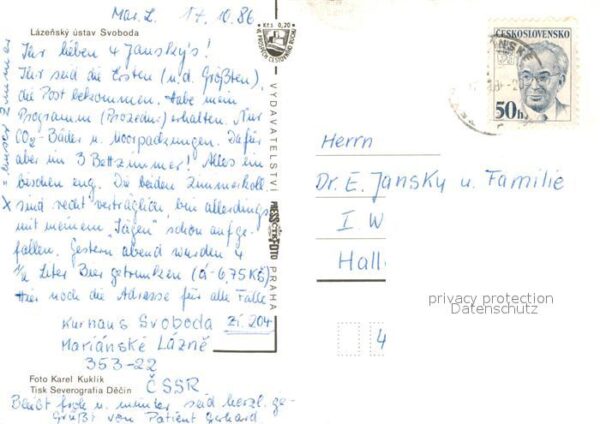 Mar. L. 17.10.86
Lázeňský ústav Svoboda
Ihr lieben 4 Jansky's!
Ihr seid die Ersten (u. d. Größten),
die Post bekommen. Habe mein
Programm (Prozedur) erhalten. Nur
CO₂-Bäder u. Moorpackungen. Dafür
aber im 3 Bettzimmer! Alles ein
bischen eng. Die beiden Zimmerkoll.
sind recht verträglich, bin allerdings
mit meinem "Sägen" schon aufge-
fallen. Gestern abend wurden 4
½ Liter Bier getrunken (á 6,75 Kčs)
Hier noch die Adresse für alle Fälle
Kurhaus Svoboda Zi. 204
Mariánské Lázně
353-22
ČSSR
Foto Karel Kuklík
Tisk Severografia Děčín
Bleibt froh u. munter, seid herzl. ge-
grüßt von Patient Gerhard.
X = unser Zimmer
Kčs 0,20
VYDAVATELSTVÍ
PRESSFOTO
PRAHA
ČESKOSLOVENSKO
50h
Herrn
Dr. E. Jansky u. Familie
I W
Hall
4
privacy protection
Datenschutz